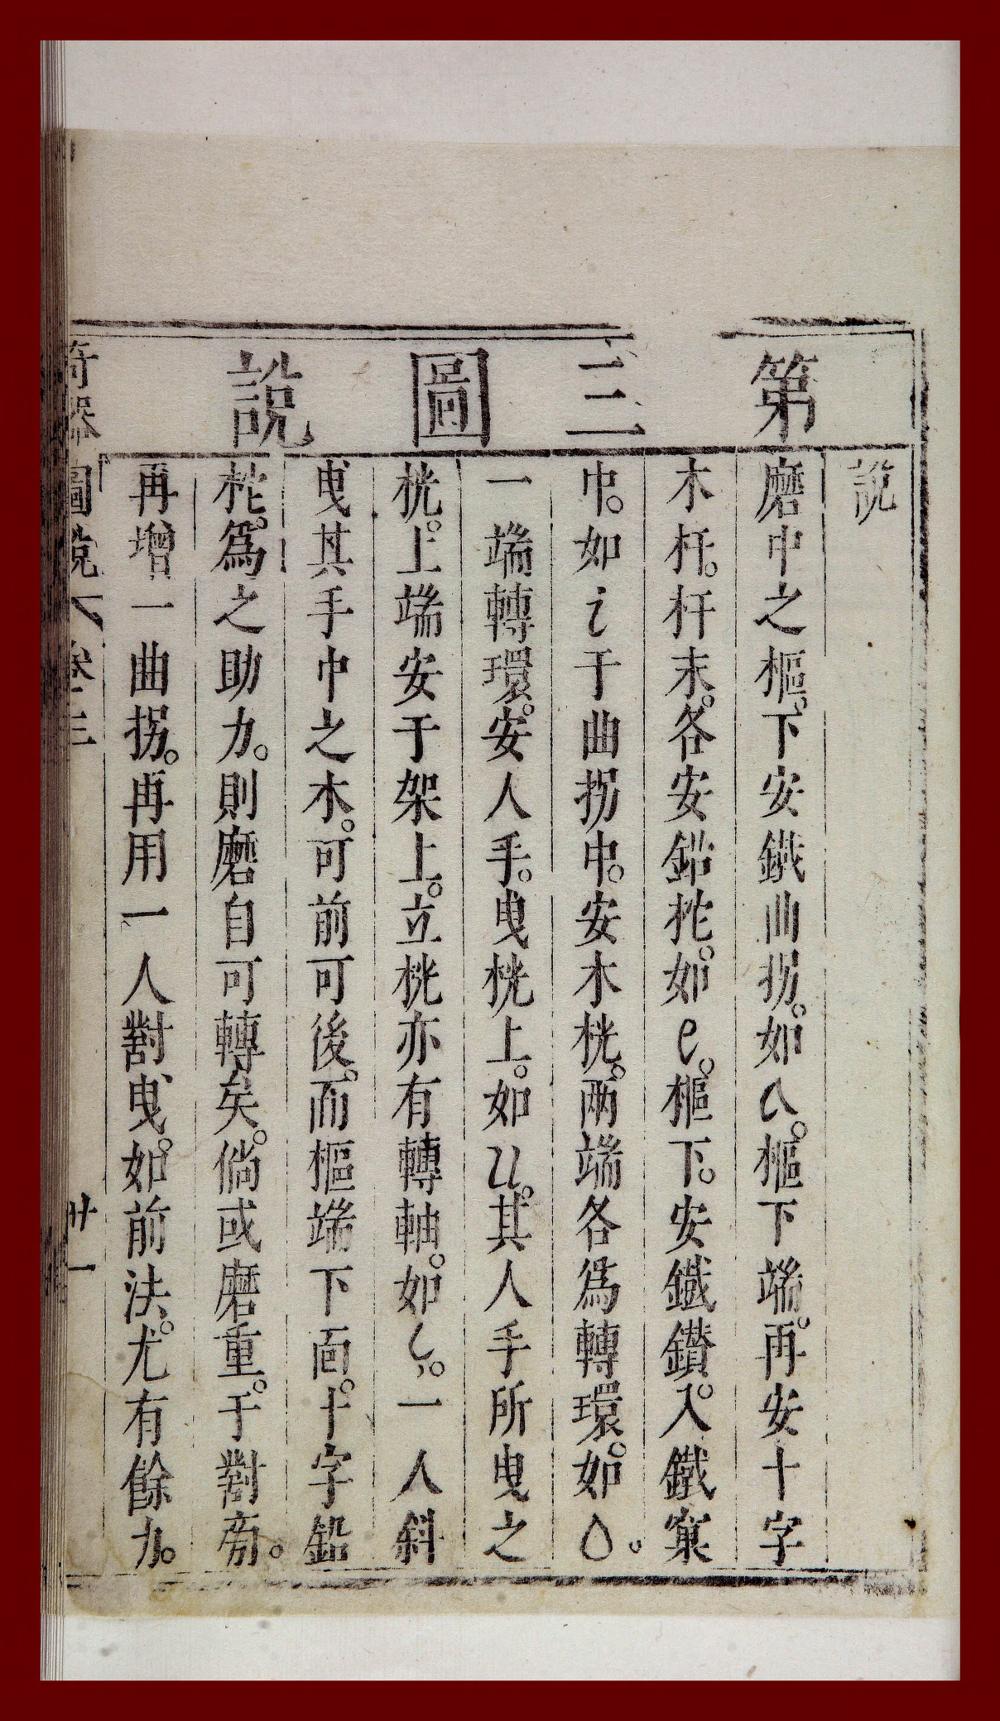 第三圖說
說
磨中之樞。下安鐵曲拐。如ก。樞下端。再安十字
木杆。杆末。各安鉛拕。如e。樞下。安鐵鑚。入鐵窠
中。如i于曲拐中。安木桄。兩端各爲轉環。如o。
一端轉環。安人手。曳桄上。如u。其人手所曳之
桄。上端安于架上。立桄亦有轉軸。如 。一人斜
曳其手中之木。可前可後。而樞端下面。十字鉛
柁。爲之助力。則磨自可轉矣。倘或磨重。于對旁。
再增一曲拐。再用一人對曳。如前法。尤有餘力。
奇器圖說 卷三 卄一